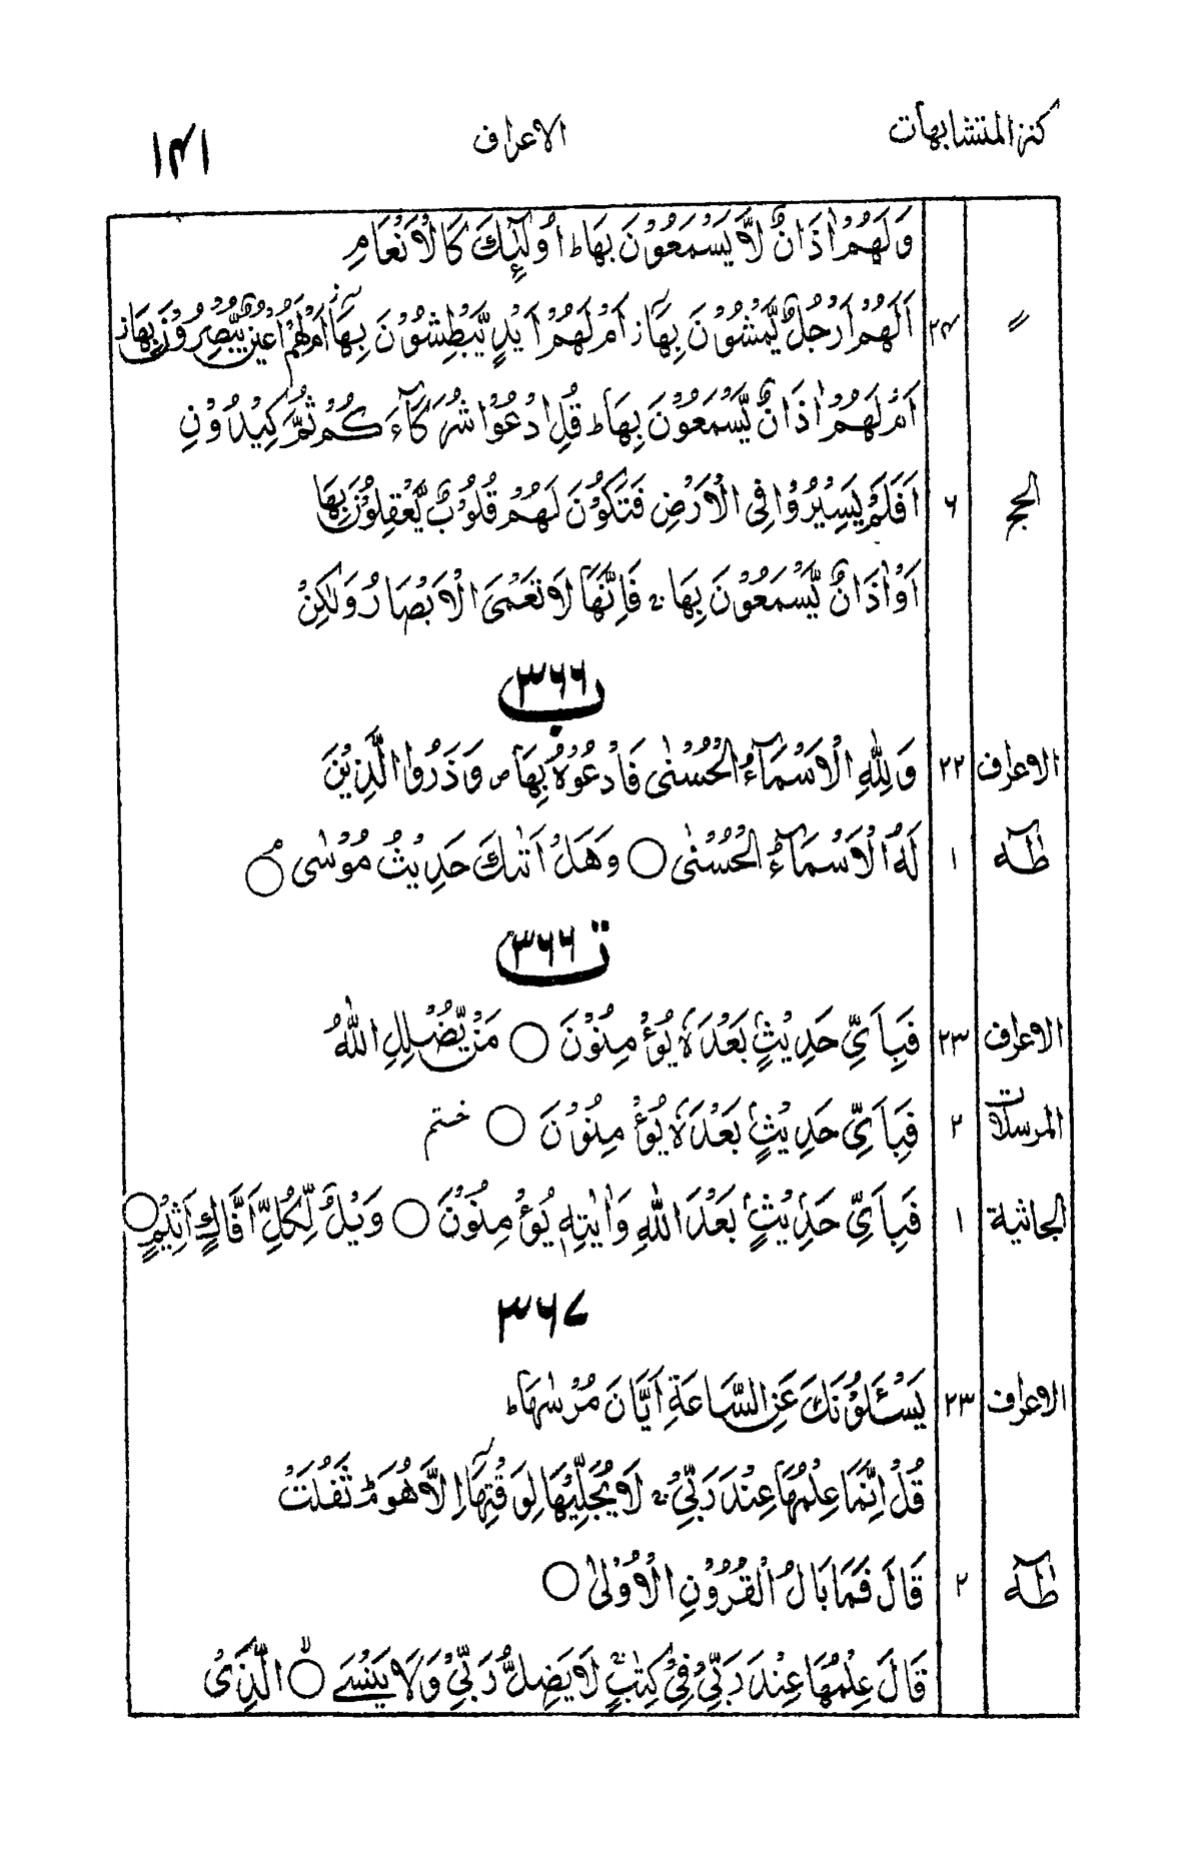 كنز المتشابهات الاعراف ۱۴۱
وَلَهُمْ اٰذَانٌ لَّا يَسْمَعُوْنَ بِهَا ؕ اُولٰٓئِكَ كَالْاَنْعَامِ
〃 ۲۴ اَلَهُمْ اَرْجُلٌ يَّمْشُوْنَ بِهَآ ز اَمْ لَهُمْ اَيْدٍ يَّبْطِشُوْنَ بِهَآ ز اَمْ لَهُمْ اَعْيُنٌ يُّبْصِرُوْنَ بِهَآ ز
اَمْ لَهُمْ اٰذَانٌ يَّسْمَعُوْنَ بِهَا ؕ قُلِ ادْعُوْا شُرَكَآءَكُمْ ثُمَّ كِيْدُوْنِ
الحج ۶ اَفَلَمْ يَسِيْرُوْا فِى الْاَرْضِ فَتَكُوْنَ لَهُمْ قُلُوْبٌ يَّعْقِلُوْنَ بِهَآ
اَوْ اٰذَانٌ يَّسْمَعُوْنَ بِهَا ۚ فَاِنَّهَا لَا تَعْمَى الْاَبْصَارُ وَلٰكِنْ
۳۶۶ ب
الاعراف ۲۲ وَلِلّٰهِ الْاَسْمَآءُ الْحُسْنٰى فَادْعُوْهُ بِهَا ص وَذَرُوا الَّذِيْنَ
طٰهٰ ۱ لَهُ الْاَسْمَآءُ الْحُسْنٰى ○ وَهَلْ اَتٰىكَ حَدِيْثُ مُوْسٰى ۘ ○
۳۶۶ ت
الاعراف ۲۳ فَبِاَىِّ حَدِيْثٍۭ بَعْدَهٗ يُؤْمِنُوْنَ ○ مَنْ يُّضْلِلِ اللّٰهُ
المرسلات ۲ فَبِاَىِّ حَدِيْثٍۭ بَعْدَهٗ يُؤْمِنُوْنَ ○ ختم
الجاثية ۱ فَبِاَىِّ حَدِيْثٍۭ بَعْدَ اللّٰهِ وَاٰيٰتِهٖ يُؤْمِنُوْنَ ○ وَيْلٌ لِّكُلِّ اَفَّاكٍ اَثِيْمٍ ○
۳۶۷
الاعراف ۲۳ يَسْـَٔلُوْنَكَ عَنِ السَّاعَةِ اَيَّانَ مُرْسٰهَا ؕ
قُلْ اِنَّمَا عِلْمُهَا عِنْدَ رَبِّىْ ۚ لَا يُجَلِّيْهَا لِوَقْتِهَآ اِلَّا هُوَ ؕ ثَقُلَتْ
طٰهٰ ۲ قَالَ فَمَا بَالُ الْقُرُوْنِ الْاُوْلٰى ○
قَالَ عِلْمُهَا عِنْدَ رَبِّىْ فِىْ كِتٰبٍ ۚ لَا يَضِلُّ رَبِّىْ وَلَا يَنْسَى ○ الَّذِىْ